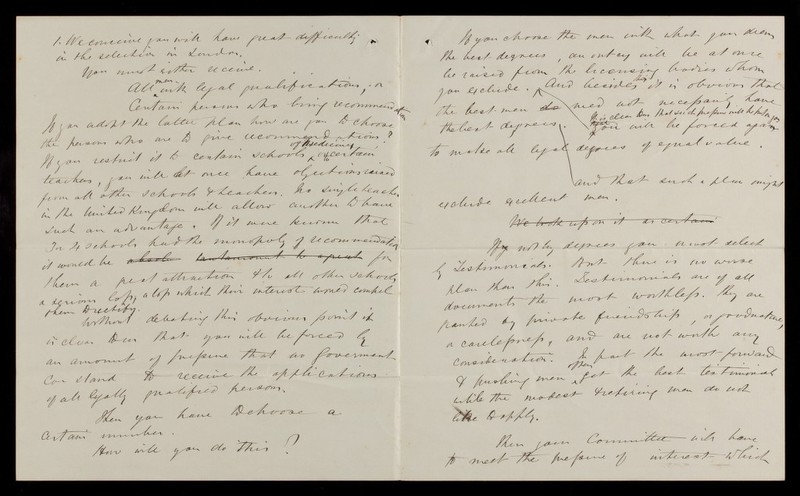 1. We conceive you will have great difficulty
in the selection in London.
You must either receive.
All men with legal qualifications, or
Certain persons who bring recommendation
If you adopt the latter plan how are you to choose
the persons who are to give recommendations?
If you restrict it to certain schools of Medicine, & certain
teachers, you will at once have objections raised
from all other schools & teachers. No single teacher
in the United Kingdom will allow another to have
such an advantage. If it were known that
3 or 4 schools had the monopoly of recommendation
it would be for
them a great attraction & to all other schools
a serious loss, a loss which their interest would compel
them to rectify.
Without debating this obvious point it
is clear to us that you will be forced by
an amount of pressure that no Government
Can stand to receive the applications
of all legally qualified persons.
Then you have to choose a
Certain number.
How will you do this?
If you choose the men with what you deem
the best degrees, an outcry will be at once
be raised from the licensing bodies whom
you exclude. And besides this it is obvious that
the best men need not necessarily have
the best degrees. It is clear to us that such pressure will be put
you will be forced again
to make all legal degrees of equal value.
and that such a plan might
exclude excellent men.
We look upon it as certain
If not by degrees you must select
by Testimonials. But there is no worse
plan than this. Testimonials are of all
documents the most worthless. They are
granted by private friendship, or goodnature,
or carelessness, and are not worth any
consideration. In fact the most forward
& pushing men often get the best testimonial
while the modest & retiring men do not
like to apply.
Then your Committee will have
to meet the pressure of interest which